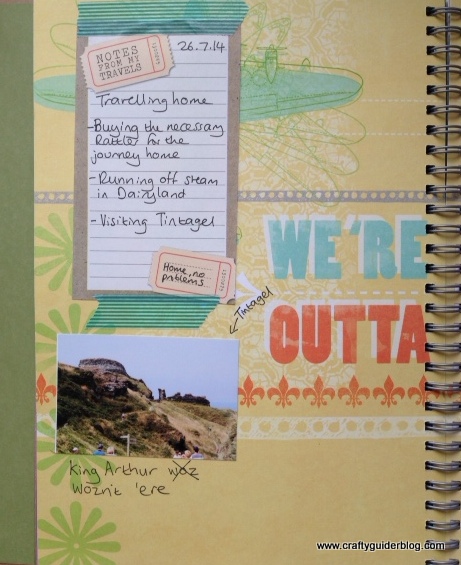 NOTES
FROM MY
TRAVELS
26.7.14
Travelling home
- Buying the necessary
Rattler for the
journey home
- Running off steam
in Dairyland
- Visiting Tintagel
Home, no
problems
Tintagel
WE'RE
OUTTA
King Arthur woz
Wozn't 'ere
www.craftyguiderblog.com